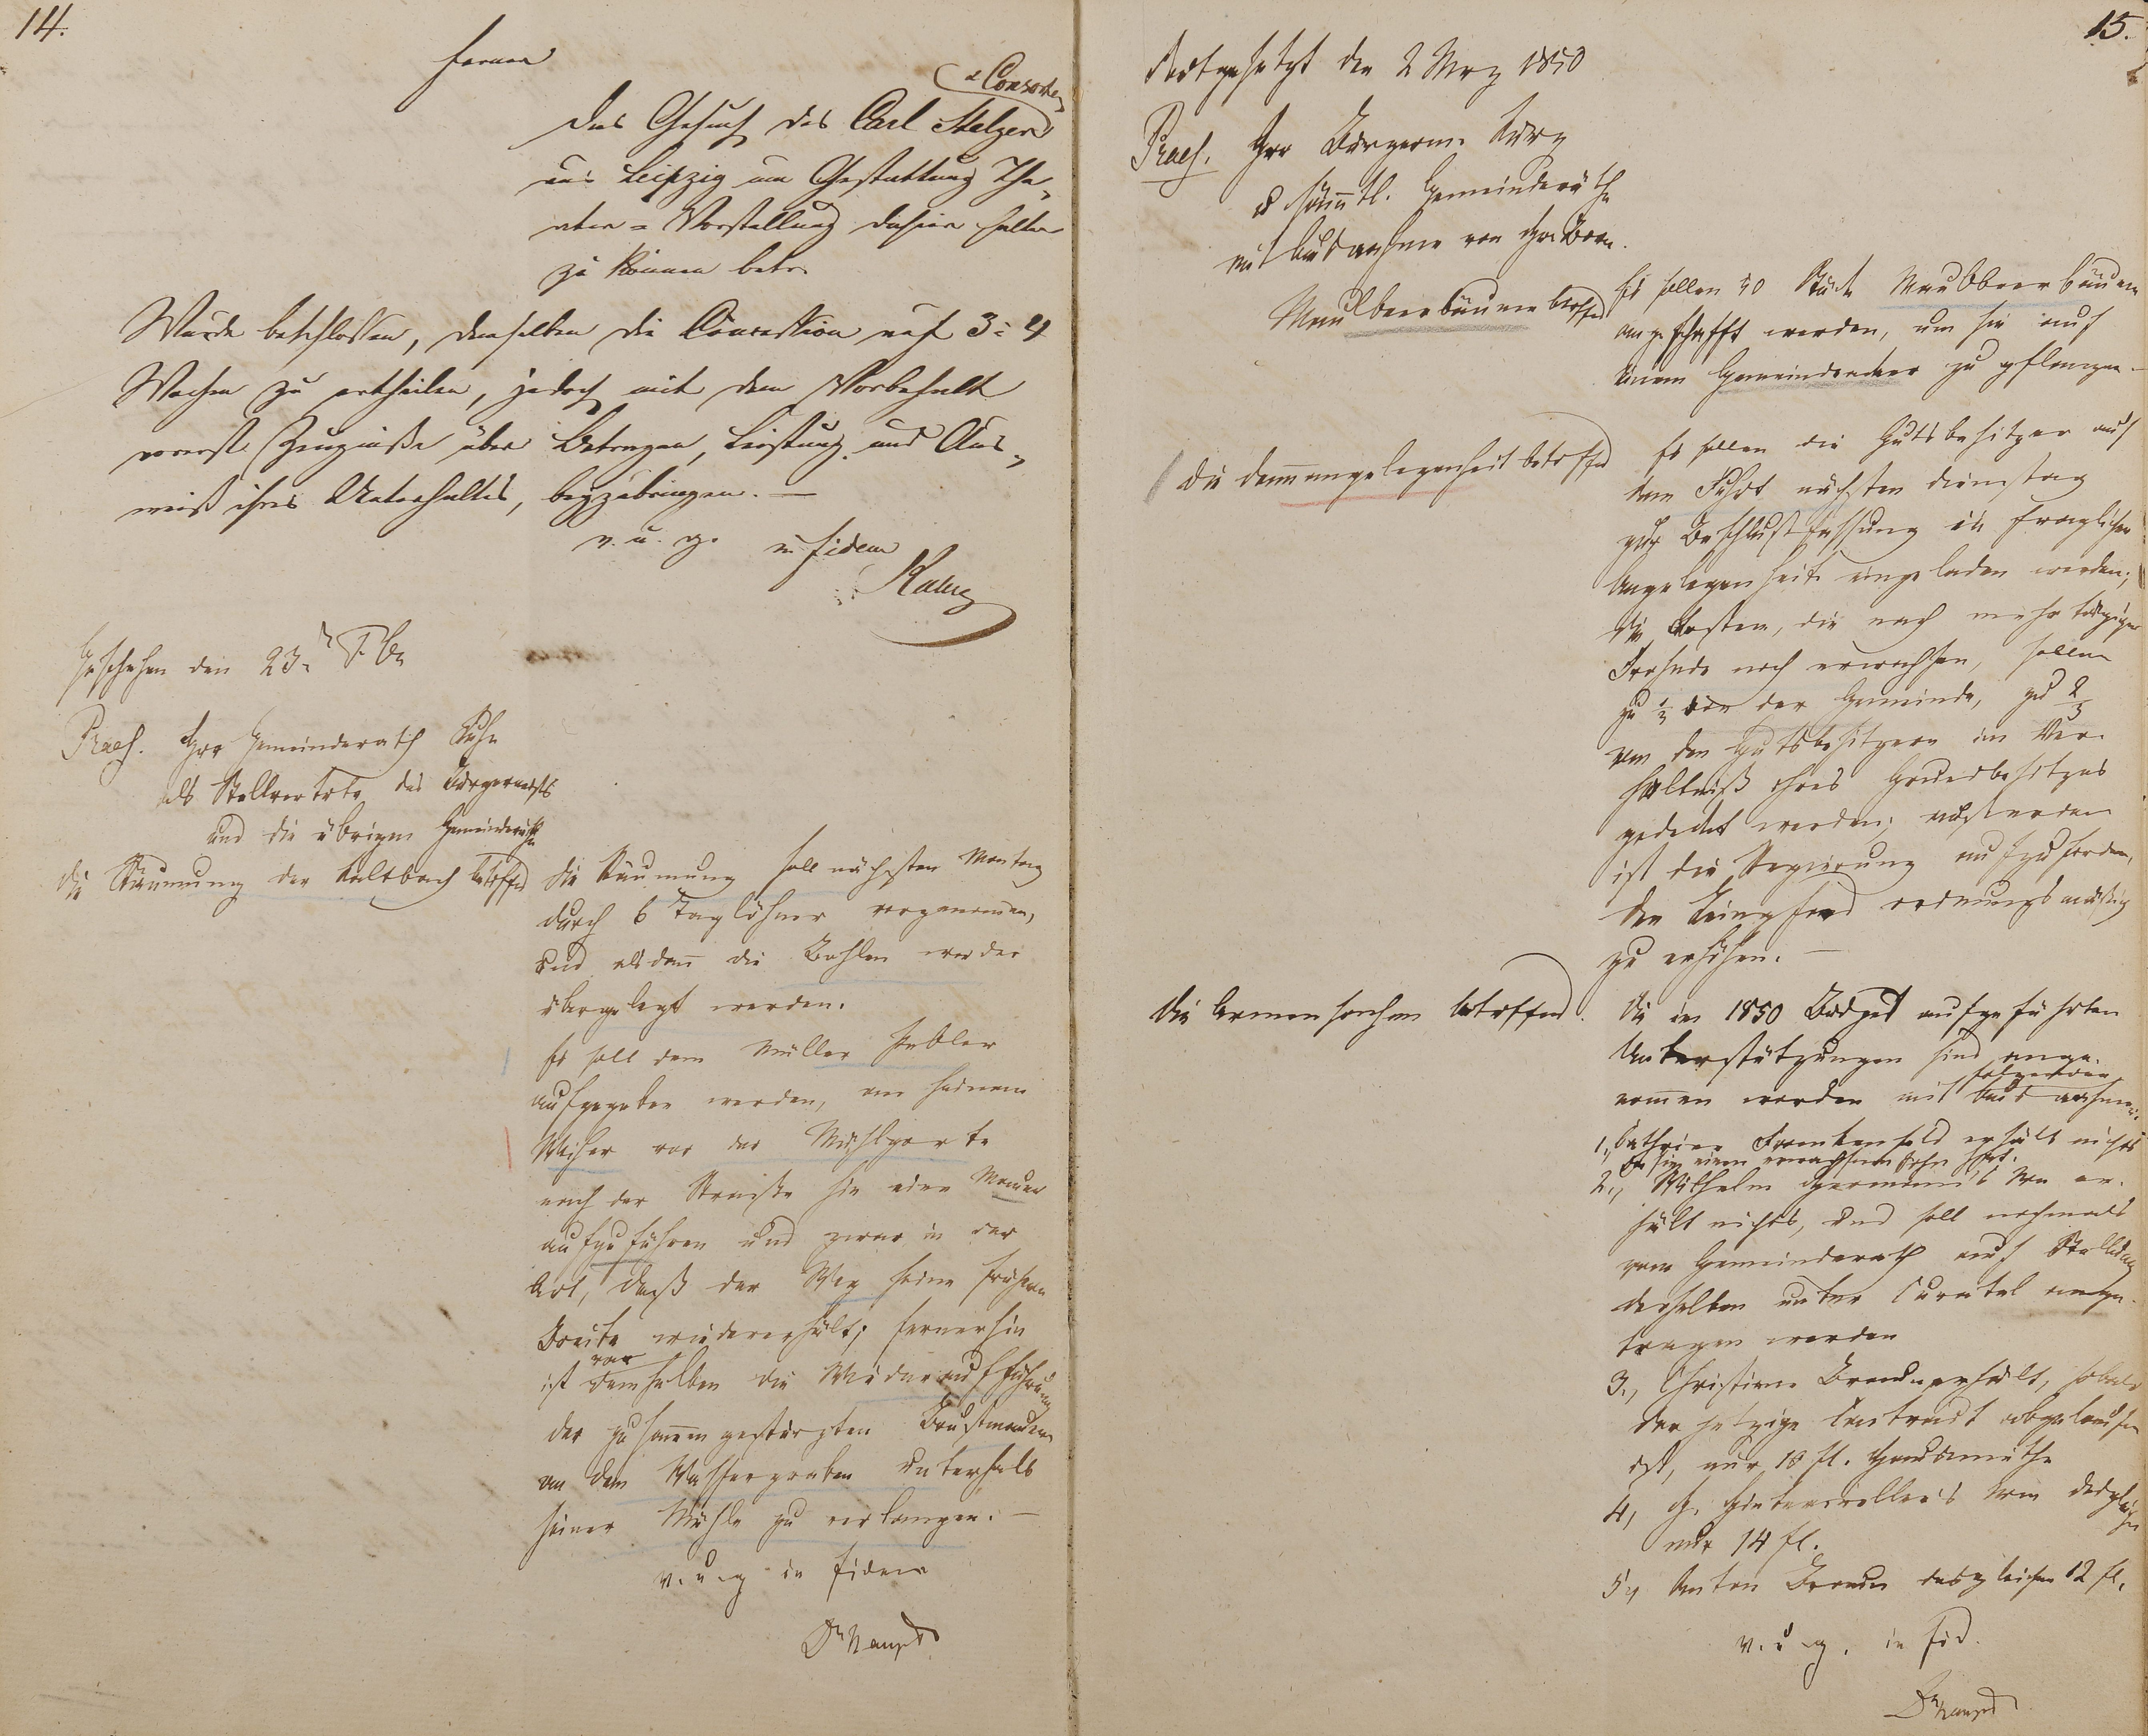 14.
ferner
& Consorten
Das Gesuch des Carl Stelzer
aus Leipzig um Gestattung The-
ater-Vorstellung dahier halten
zu können betr.
Wurde beschlossen, demselben die Concession auf 3-4
Wochen zu ertheilen, jedoch mit dem Vorbehalt
vorerst Zeugniße über Betragen, Leistung und Aus-
weiß ihres Unterhaltes, beyzubringen. —
v. u. g. in fidem
Geschehen den 23. Fbr
Praes. Herr Gemeinderath
als Stellvertrtr des Bürgermstrs
und die übrigen Gemeinderäthe
die Räumung der Kaltbach betrffd
die Räumung soll nächsten Montag
durch 6 Taglöhner vorgenommen,
und alsdann die Bohlen wieder
übergelegt werden.
Es soll dem Müller
aufgegeben werden, an seinem
Weiher vor der Mühlpforte
nach der Straiße hin eine Mauer
aufzuführen und zwar in der
Art, daß der Weg seine frühere
Breite wiedererhält; fernerhin
ist von
demselben die Wiederaufführung
der zusammengestürzten Brustmauern
an dem Wassergraben unterhalb
seiner Mühle zu verlangen. —
v. u. g. in fidem
15.
Fortgesetzt den 2 Mrz 1850
Praes. Herr Bürgerm.
u sämmtl. Gemeinderäthe
mit Ausnahme von Hr. Born.
Maulbeerbäume betrffd
Es sollen 50 Stück Maulbeerbäume
angeschafft werden, um sie auf
einem Gemeindeacker zu pflanzen —
die Dammangelegenheit betrffd
Es sollen die Gutsbesitzer auf
dem nächsten Dienstag
zur Beschlußfassung in fraglicher
Angelegenheit eingeladen werden;
die Kosten, die nach mehrtägiger
Frohnde noch erwachsen, sollen
zu 1/3 von der Gemeinde, zu 2/3
von den Gutsbesitzern im Ver-
hältniß ihres Grundbesitzes
gedeckt werden; außerdem
ist die Regierung aufzufordern,
den Leinpfad ordnungsmäßig
zu erhöhen. —
Die Armensachen betrffend.
Die im 1850 Budget aufgeführten
Unterstützungen sind ange-
nommen worden mit
folgenden
Ausnahmen:
1., Cathrine Frankenfeld erhält nichts
da sie einen erwachsenen Sohn hat.
2., Wilhelm Hermann's Ww er-
hält nichts, und soll nochmals
vom Gemeinderath auf Stellung
derselben unter Curatel ange-
tragen werden
3., Christian Braun erhält, sobald
der jetzige Contract abgelaufen
ist, nur 10 fl. Hausmiethe
4, Ww desgleichen
nur 14 fl.
5., Anton Braun desgleichen 12 fl.
v. u. g. in fid.